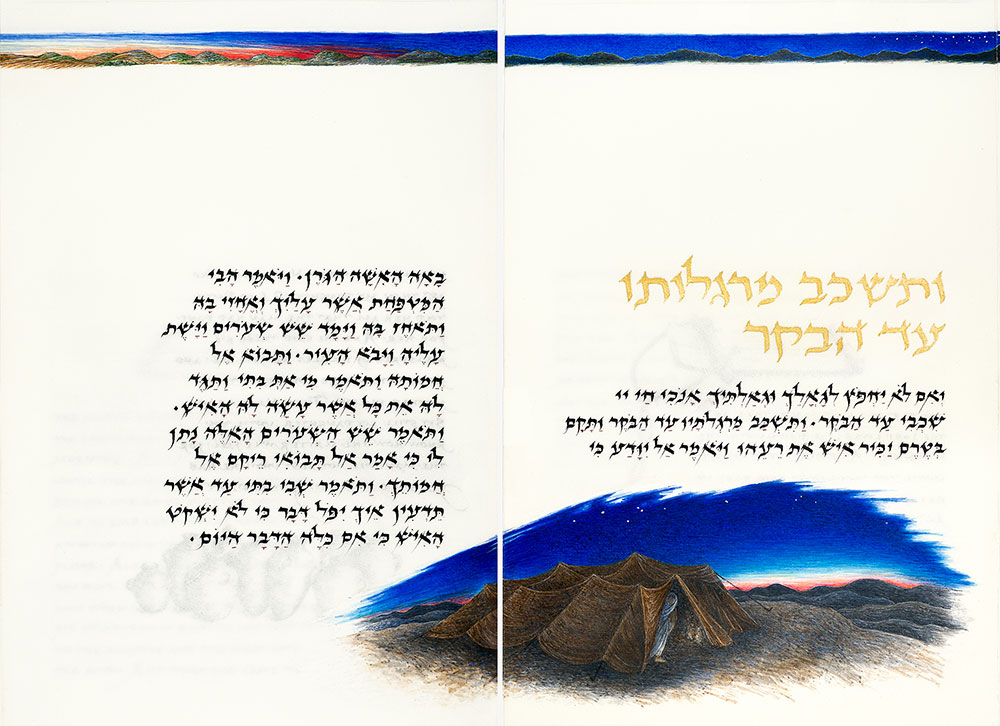 ותשכב מרגלותו
עד הבקר
ואם לא יחפץ לגאלך וגאלתיך אנכי חי יי
שכבי עד הבקר · ותשכב מרגלתיו עד הבקר ותקם
בטרם יכיר איש את רעהו ויאמר אל יודע כי
באה האשה הגרן · ויאמר הבי
המטפחת אשר עליך ואחזי בה
ותאחז בה וימד שש שערים וישת
עליה ויבא העיר · ותבוא אל
חמותה ותאמר מי את בתי ותגד
לה את כל אשר עשה לה האיש ·
ותאמר שש השערים האלה נתן
לי כי אמר אל תבואי ריקם אל
חמותך · ותאמר שבי בתי עד אשר
תדעין איך יפל דבר כי לא ישקט
האיש כי אם כלה הדבר היום ·